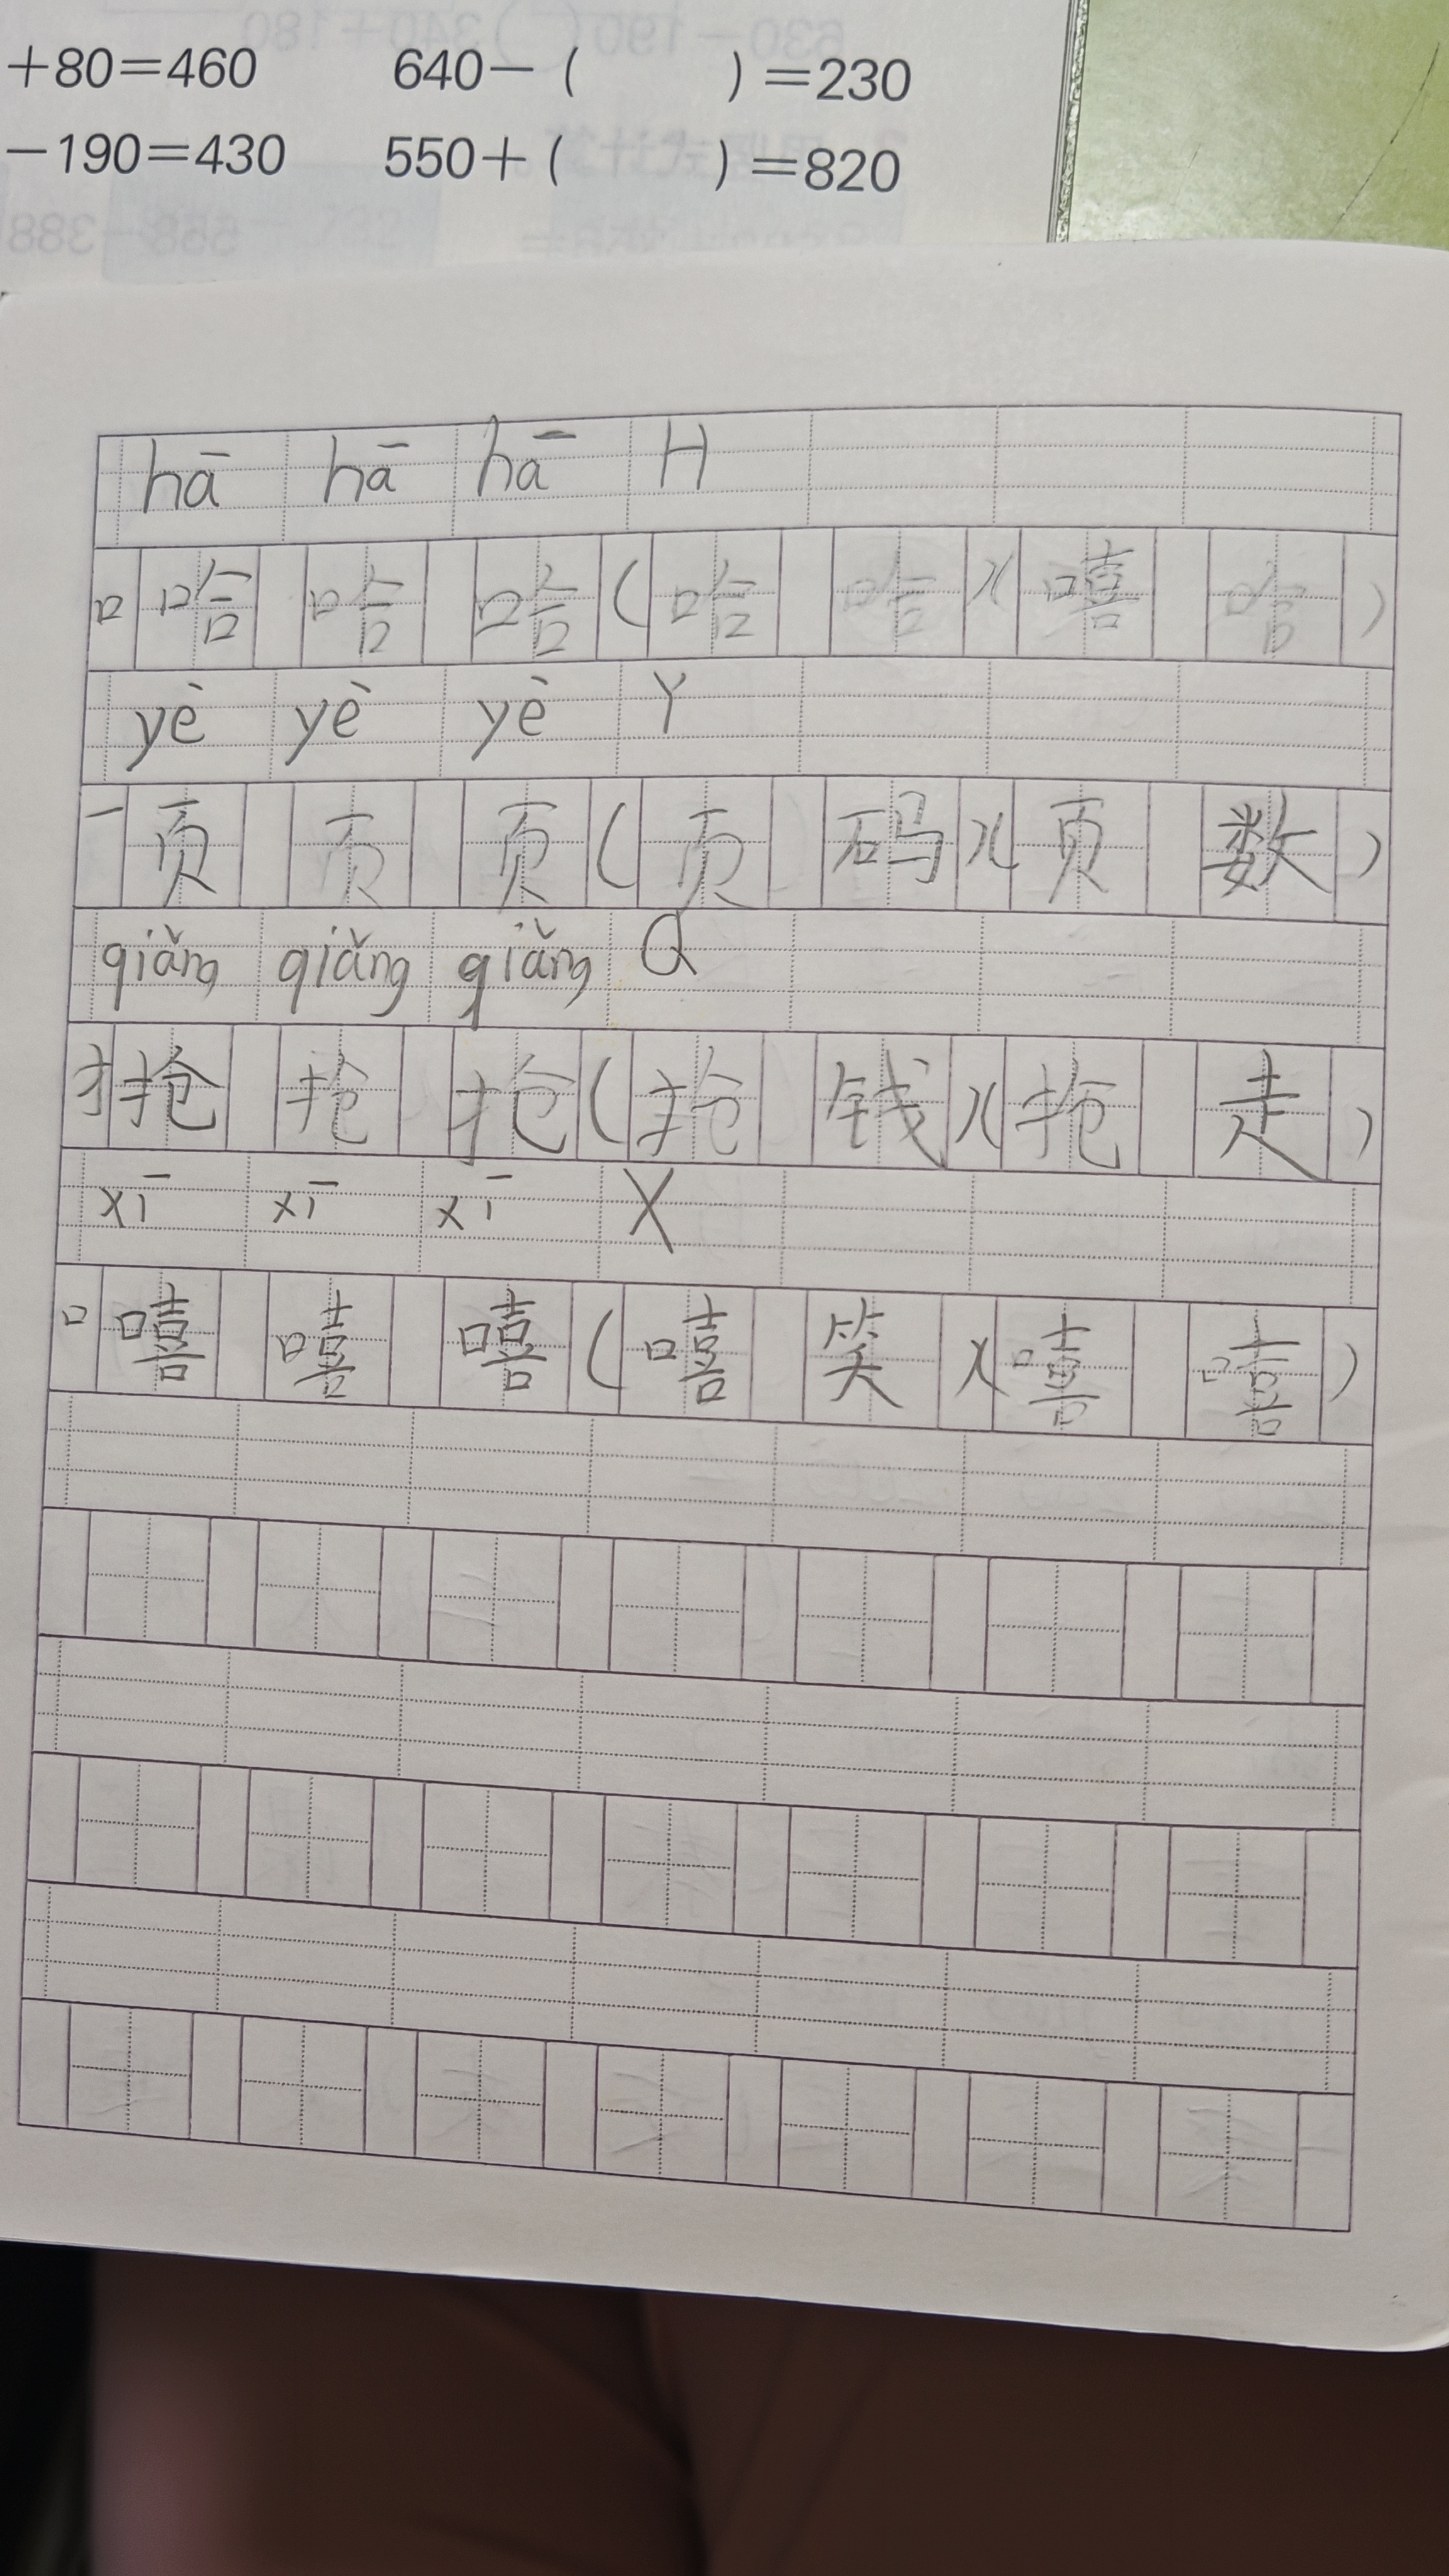 +80=460 640-( )=230
-190=430 550+( )=820
hā hā hā H
口 哈 哈 哈(哈 哈)(嘻 哈)
yè yè yè Y
一 页 页 页(页 码)(页 数)
qiǎng qiǎng qiǎng Q
扌 抢 抢 抢(抢 钱)(抢 走)
xī xī xī X
口 嘻 嘻 嘻(嘻 笑)(嘻 嘻)